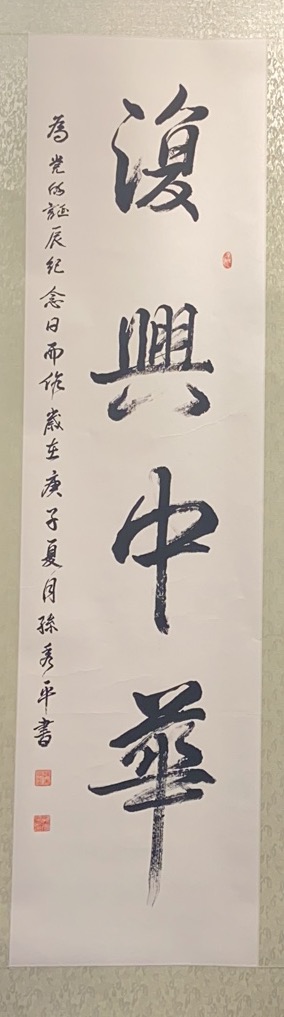 復興中華
為党的誕辰紀念日而作歲在庚子夏月孫秀平書